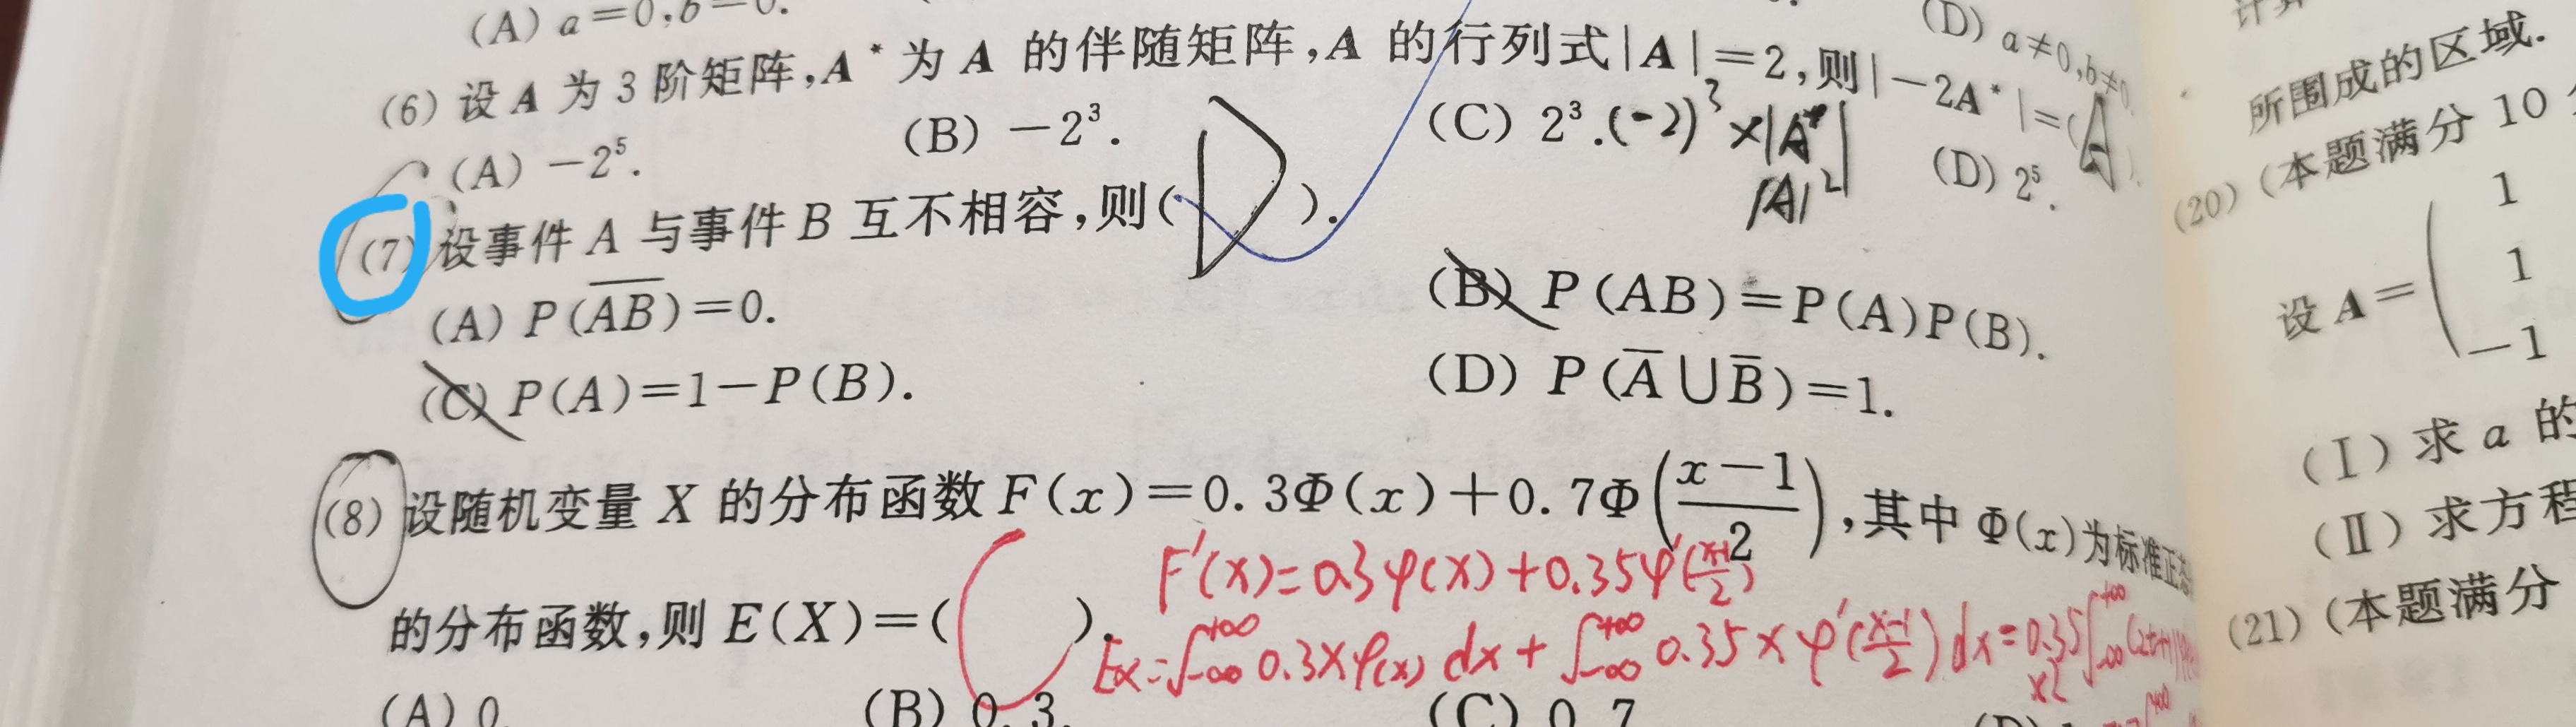 (A) a=0,b=0.
(D) a≠0,b≠0.
(6) 设 A 为 3 阶矩阵,A* 为 A 的伴随矩阵,A 的行列式|A|=2,则|-2A*|=(A).
(A) -2⁵.
(B) -2³.
(C) 2³.
(-2)³×|A*|
|A|²
(D) 2⁵.
(7) 设事件 A 与事件 B 互不相容,则( D ).
(A) P(\overline{AB})=0.
(B) P(AB)=P(A)P(B).
(C) P(A)=1-P(B).
(D) P(\overline{A}∪\overline{B})=1.
(8) 设随机变量 X 的分布函数 F(x)=0.3Φ(x)+0.7Φ((x-1)/2),其中 Φ(x)为标准正态
F'(x)=0.3φ(x)+0.35φ'((x-1)/2)
的分布函数,则 E(X)=( C ).
Ex=∫_{-∞}^{+∞} 0.3xφ(x) dx + ∫_{-∞}^{+∞} 0.35xφ'((x-1)/2) dx = 0.35
×2
∫_{-∞}^{+∞}(2t+1)
(A) 0.
(B) 0.3.
(C) 0.7
所围成的区域.
(20) (本题满分 10
设 A=
1
1
-1
(Ⅰ) 求 a 的
(Ⅱ) 求方程
(21) (本题满分